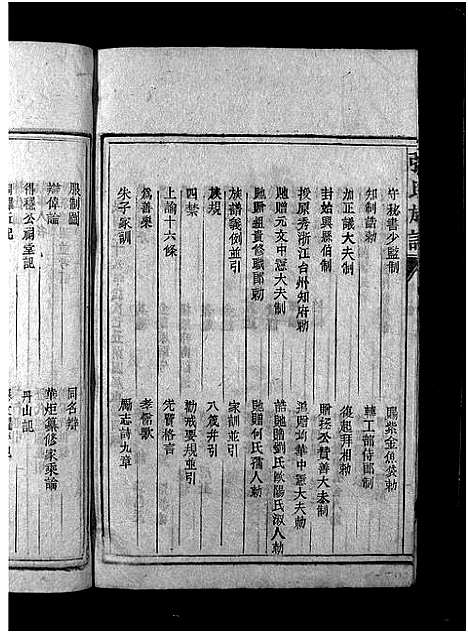 張氏族譜
守秘書少監制
賜紫金魚袋勅
知制誥勅
轉工部侍郎制
加正議大夫制
復起拜相勅
封始興縣伯制
贈擇公贊善大夫制
授原秀浙江台州知府勅
追贈均華中憲大夫勅
馳贈元文中憲大夫制
誥贈劉氏歐陽氏淑人勅
馳贈組貴修職郎勅
馳贈何氏孺人勅
族譜義例並引
家訓並引
族規
八箴并引
四禁
勸戒要規並引
上諭十六條
先賢格言
為善樂
孝儒歌
朱子家訓
勵志詩九章
服制圖
同名辨
辯偉論
華炬纂修家乘論
得穩公祠堂記
丹山記